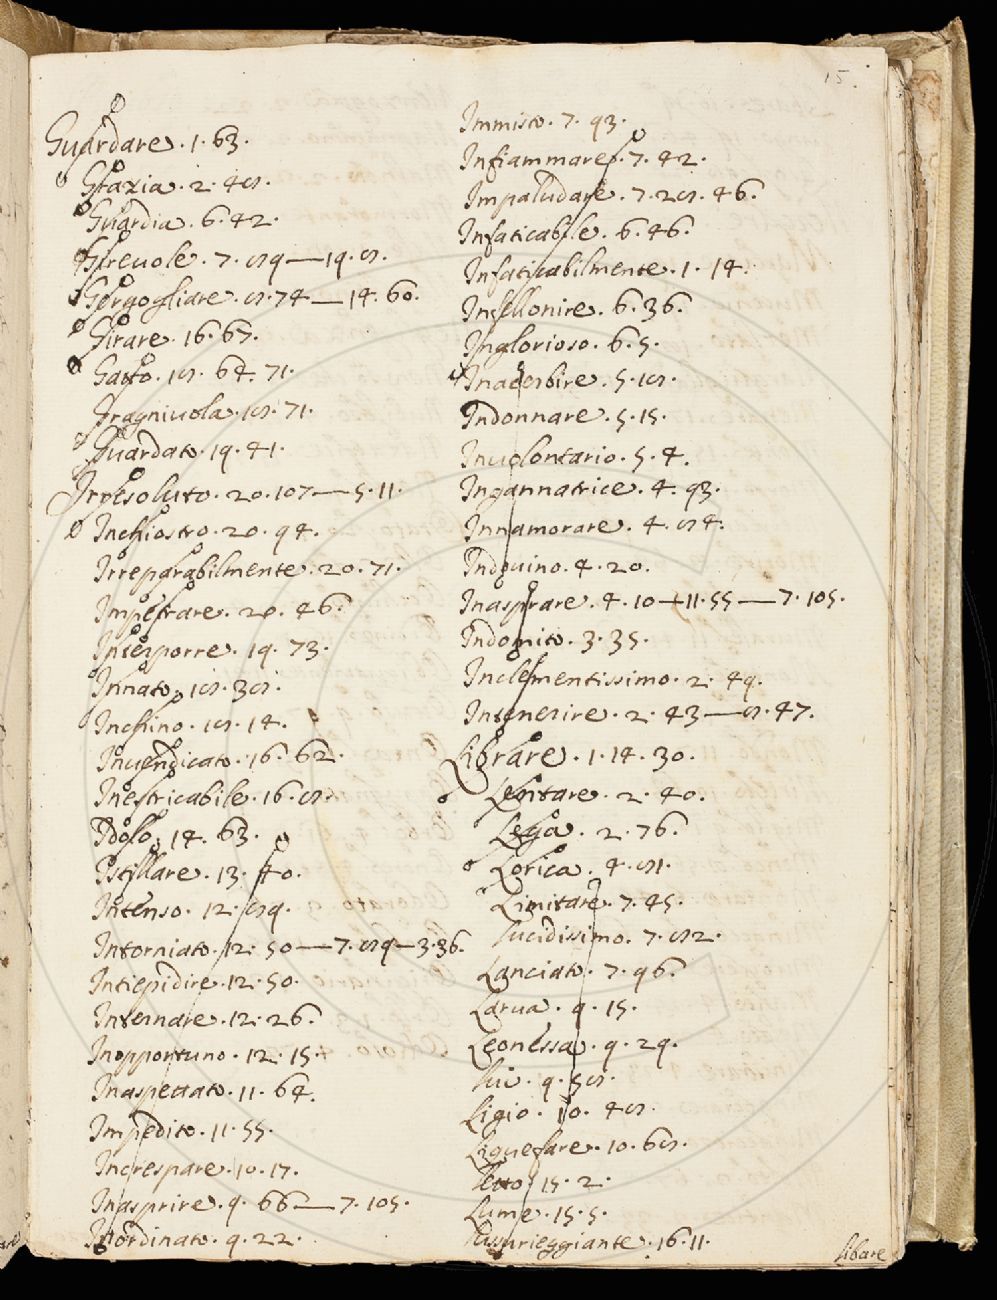 15
Guardare. 1. 63.
Grazia. 2. 48.
Guardia. 6. 42.
Greuole. 7. 89 — 19. 8.
Gorgogliare. 8. 74 — 14. 60.
Girare. 16. 67.
Gatto. 18. 64. 71.
Gragniuola. 18. 71.
Guardato. 19. 41.
Irresoluto. 20. 107 — 5. 11.
Inchiostro. 20. 94.
Irreparabilmente. 20. 71.
Impetrare. 20. 46.
Interporre. 19. 73.
Innato. 18. 38.
Inchino. 18. 14.
Inuendicato. 16. 62.
Inestricabile. 16. 8.
Idolo. 14. 63.
Istillare. 13. 40.
Intenso. 12. 89.
Intorniato. 12. 50 — 7. 89 — 3. 36.
Intiepidire. 12. 50.
Internare. 12. 26.
Inopportuno. 12. 15.
Inaspettato. 11. 64.
Impedito. 11. 55.
Increspare. 10. 17.
Inasprire. 9. 66 — 7. 105.
Inordinato. 9. 22.
Immisto. 7. 93.
Infiammare. 7. 42.
Impaludare. 7. 28. 46.
Infaticabile. 6. 46.
Infaticabilmente. 1. 14.
Infellonire. 6. 36.
Inglorioso. 6. 5.
Inacerbire. 5. 18.
Indonnare. 5. 15.
Inuolontario. 5. 4.
Ingannatrice. 4. 93.
Innamorare. 4. 84.
Indouino. 4. 20.
Inasprare. 4. 10 — 11. 55 — 7. 105.
Indomito. 3. 35.
Inclementissimo. 2. 49.
Intenerire. 2. 43 — 8. 47.
Librare. 1. 14. 30.
Lentare. 2. 40.
Lega. 2. 76.
Lorica. 4. 81.
Limitare. 7. 45.
Lucidissimo. 7. 82.
Lanciato. 7. 96.
Larua. 9. 15.
Leonessa. 9. 29.
Lui. 9. 58.
Ligio. 10. 48.
Liquefare. 10. 68.
Letto. 15. 2.
Lume. 15. 5.
Lussurieggiante. 16. 11.
libare